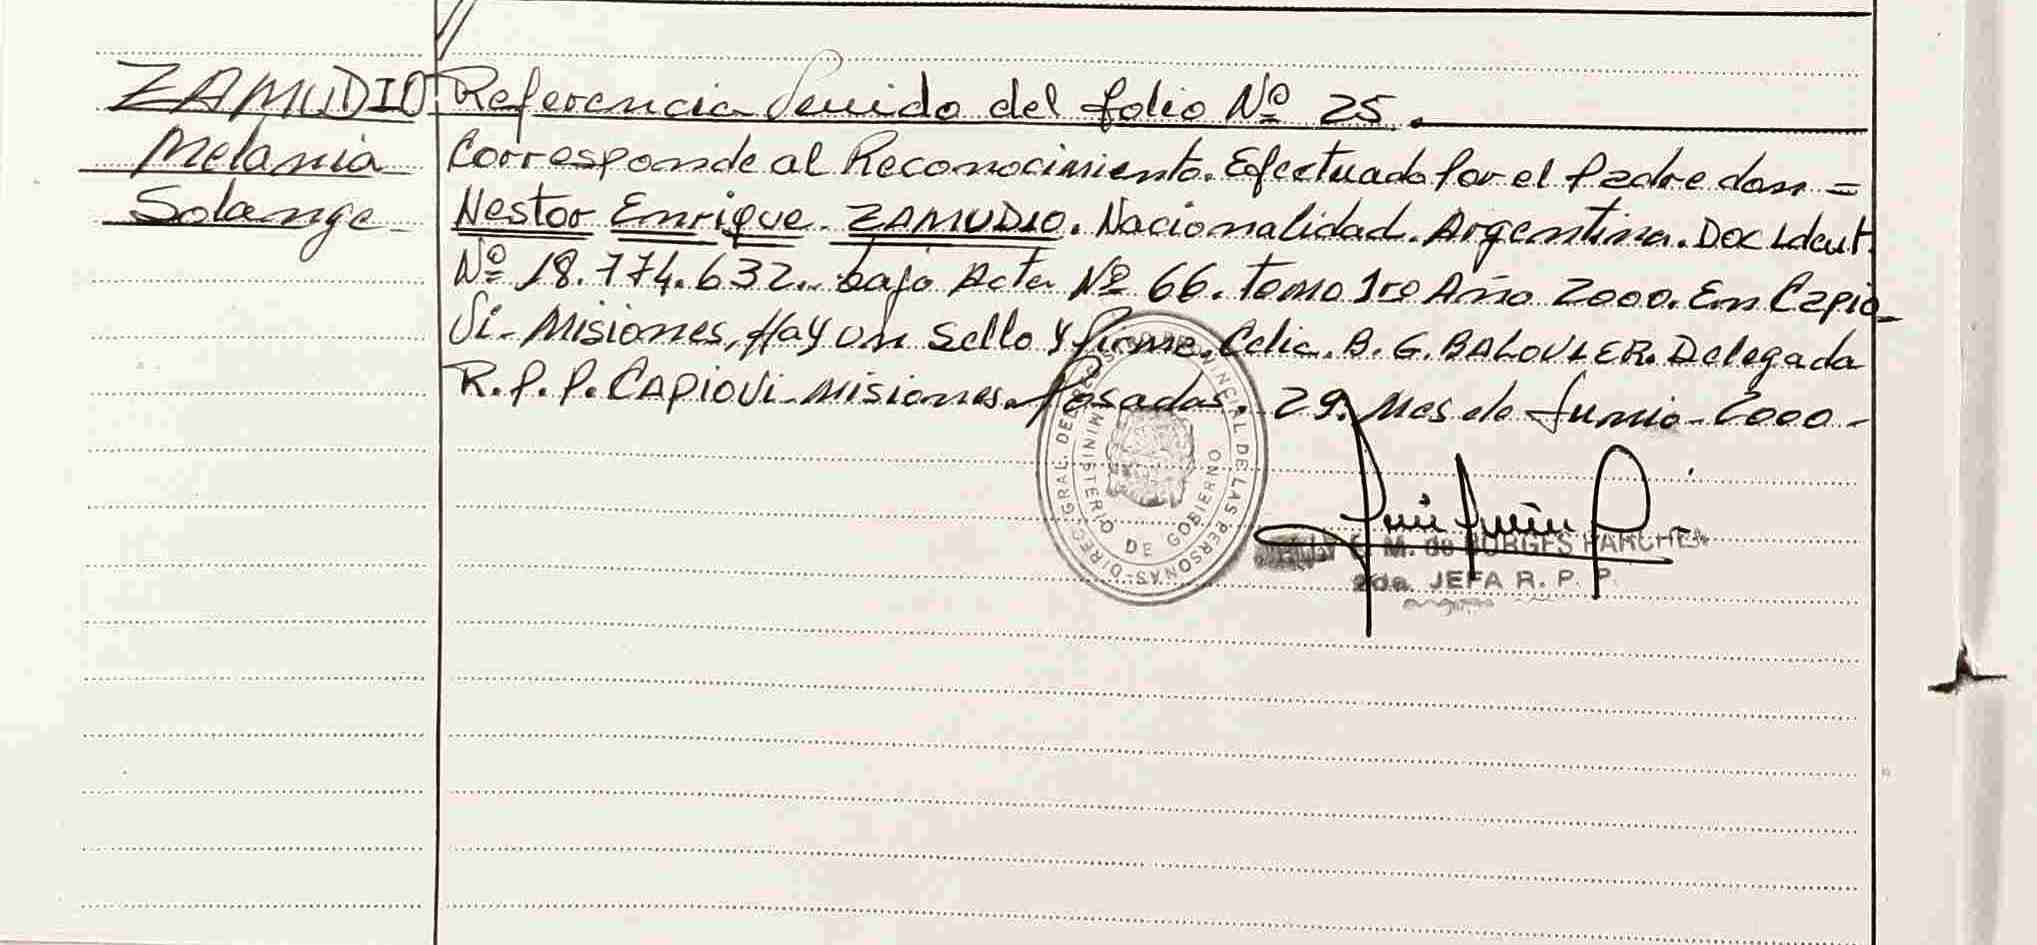 ZAMUDIO
Melania
Solange
Referencia Venido del folio Nº 25.
Corresponde al Reconocimiento. Efectuado Por el Padre don =
Nestor Enrique ZAMUDIO. Nacionalidad. Argentina. Doc Ident.
Nº 18.774.632.. bajo Acta Nº 66. tomo 1ro Año 2000. En Capio-
Vi- Misiones, Hay un Sello y firma. Celia. B. G. BALOULER. Delegada
R.P.P. CAPIOVI- Misiones. Posadas. 29. Mes de Junio- 2000-
DIREC. GRAL. DEL PROVINCIAL DE LAS PERSONAS
MINISTERIO DE GOBIERNO
M. de BORGES
2da. JEFA R. P. P.